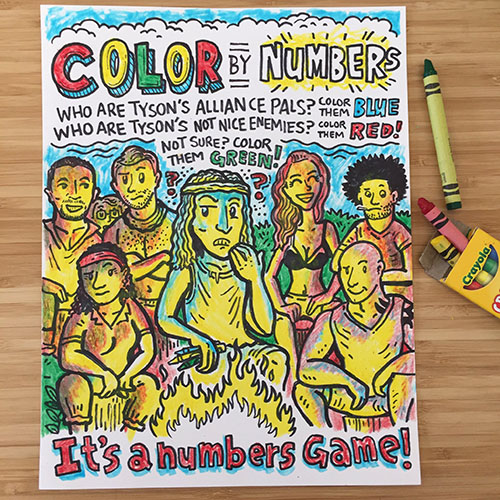 COLOR BY NUMBERS
WHO ARE TYSON'S ALLIANCE PALS? COLOR THEM BLUE
WHO ARE TYSON'S NOT NICE ENEMIES? COLOR THEM RED!
NOT SURE? COLOR THEM GREEN!
? ?
It's a numbers Game!
Crayola